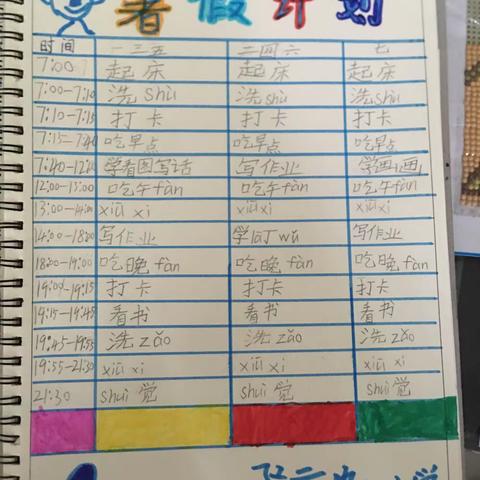 暑假计划
时间 一三五 二四六 七
7:00 起床 起床 起床
7:00-7:10 洗shù 洗shù 洗shù
7:10-7:15 打卡 打卡 打卡
7:15-7:40 吃早点 吃早点 吃早点
7:40-12:00 学看图写话 写作业 学画画
12:00-13:00 吃午fàn 吃午fàn 吃午fàn
13:00-14:00 xiū xi xiū xi xiū xi
14:00-18:00 写作业 写作业
18:00-19:00 吃晚fàn 吃晚fàn 吃晚fàn
19:00-19:15 打卡 打卡 打卡
19:15-19:45 看书 看书 看书
19:45-19:55 洗zǎo 洗zǎo 洗zǎo
19:55-21:30 xiū xi xiū xi xiū xi
21:30 shuì觉 shuì觉 shuì觉